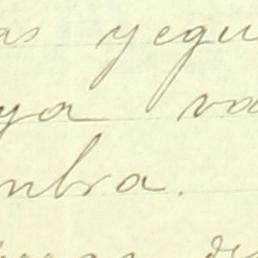 as yegu
ya va
mbra.